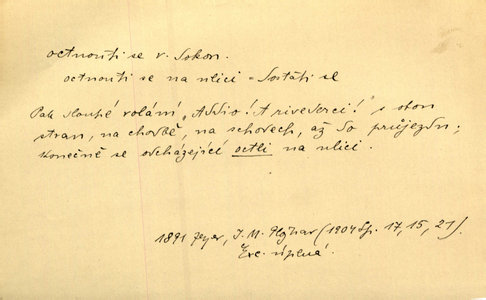 octnouti se v. dokon.
octnouti se na ulici = dostati se
Pak dlouhé volání „Addio! A rivederci!" s obou
stran, na chodbě, na schodech, až do průjezdu;
konečně se odcházející octli na ulici.
1891 Zeyer, J. M. Plojhar (1904 Sp. 17, 15, 21).
Exc. úplná.